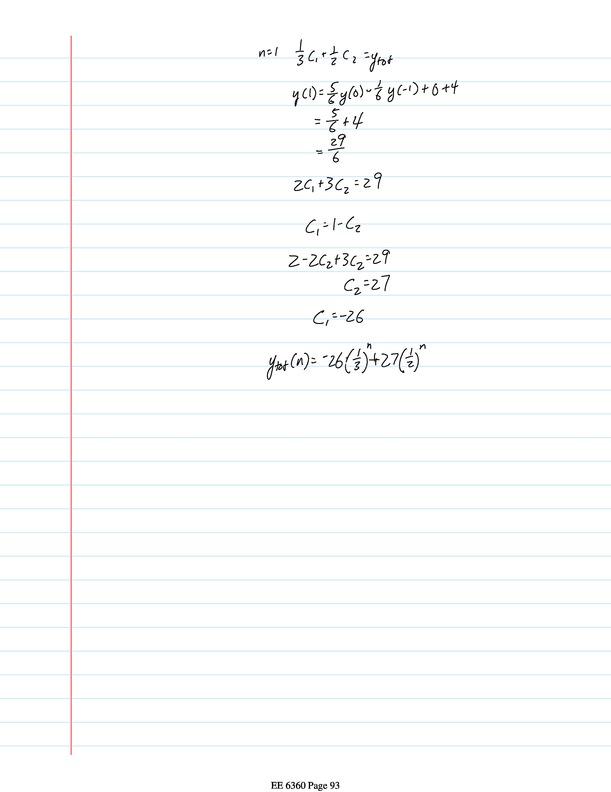 n=1 1/3 C₁ + 1/2 C₂ = y_tot
y(1) = 5/6 y(0) - 1/6 y(-1) + 0 + 4
= 5/6 + 4
= 29/6
2C₁ + 3C₂ = 29
C₁ = 1 - C₂
2 - 2C₂ + 3C₂ = 29
C₂ = 27
C₁ = -26
y_tot(n) = -26(1/3)ⁿ + 27(1/2)ⁿ
EE 6360 Page 93